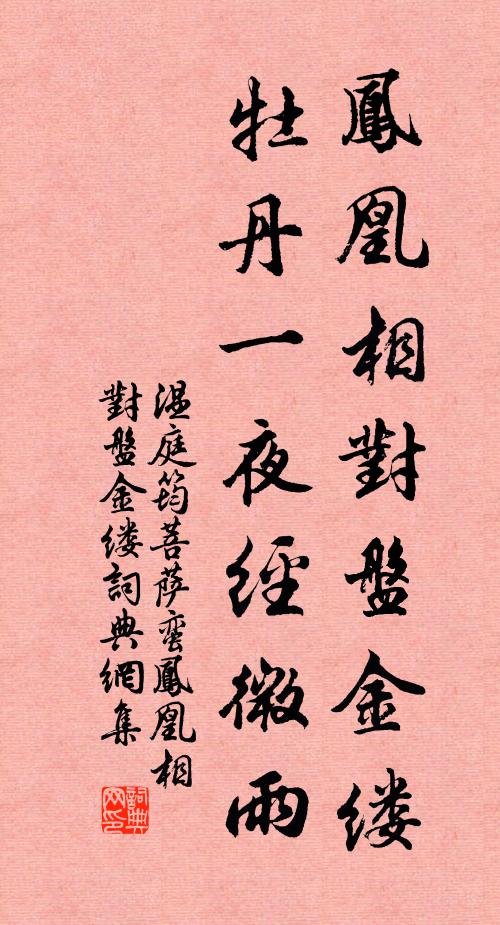 鳳凰相對盤金缕
牡丹一夜經微雨
温庭筠菩萨蛮鳳凰相
對盤金缕詞典網集
詞典
网印